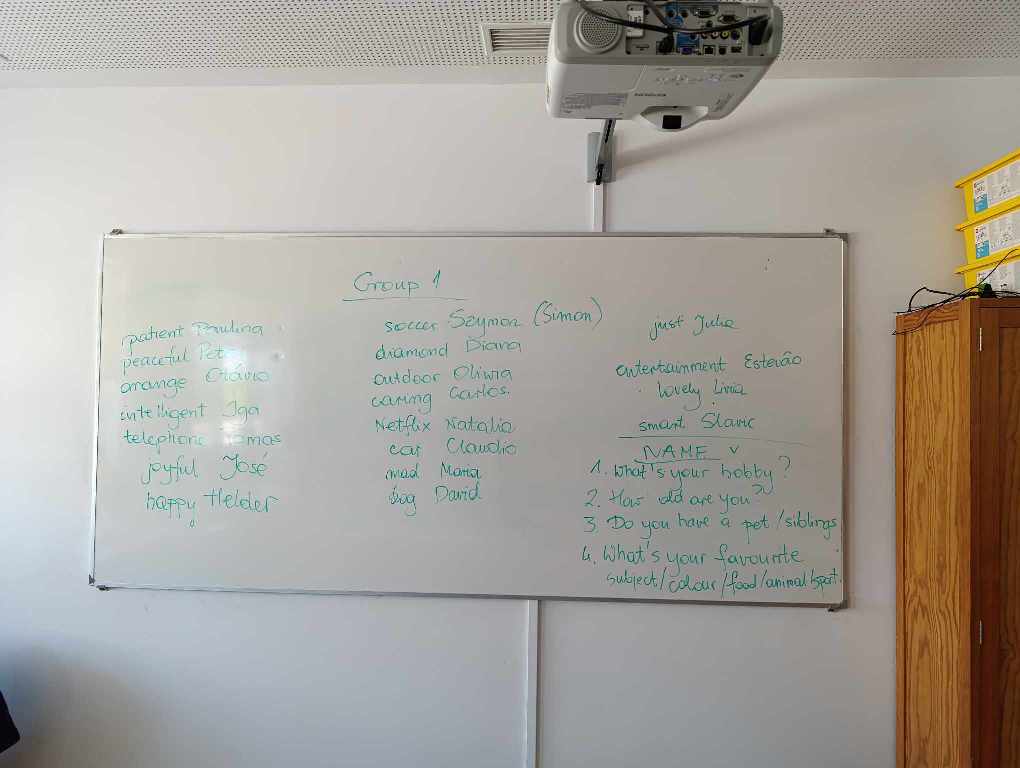 Group 1
patient Paulina
peaceful Pete
orange Otávio
intelligent Iga
telephone Tomas
joyful José
happy Helder
soccer Szymon (Simon)
diamond Diana
outdoor Oliwia
caring Carlos.
Netflix Natalia
car Claudio
mad Maria
David
just Julia
entertainment Estevão
lovely Livia
smart Slavic
NAME
1. What's your hobby?
2. How old are you?
3. Do you have a pet/siblings
4. What's your favourite
subject/colour/food/animal/sport.